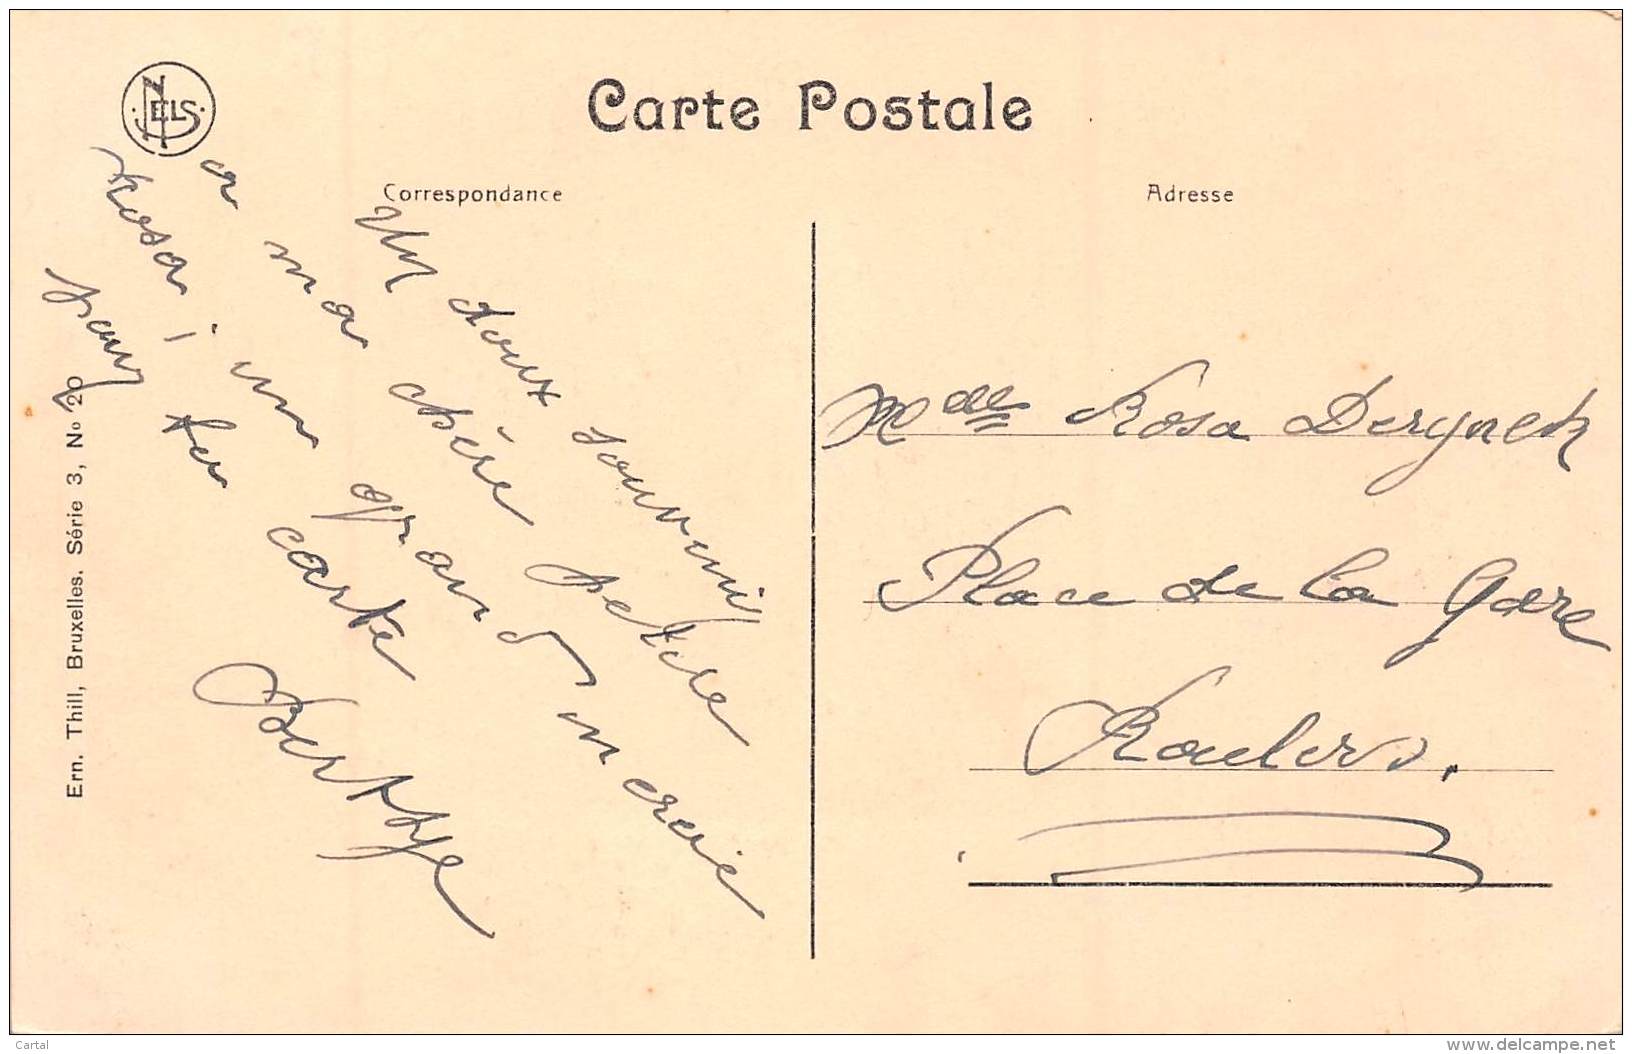 NELS
Carte Postale
Correspondance
Adresse
Un doux souvenir
a ma chère petite
Rosa, un grand mercie
pour ta carte
Berthe
Mdlle Rosa Derynck
Place de la Gare
Roulers.
Ern. Thill, Bruxelles. Série 3, No 20
Cartal
www.delcampe.net